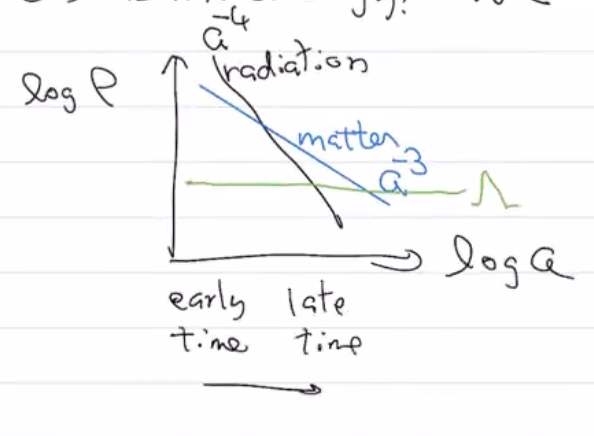 a⁻⁴
radiation
log ρ
matter
a⁻³
Λ
log a
early late
time time